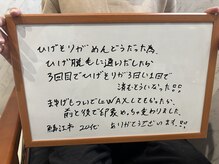 ひげそりがめんどうだった為、
ひげ脱毛に通いだしたら
3回目でひげそりが3日に1回で
済むようになった!!
まゆげもついでにWAXしてもらったが、
前と後で印象めっちゃ変わりました
鯖江市 20代 ありがとうございます!!